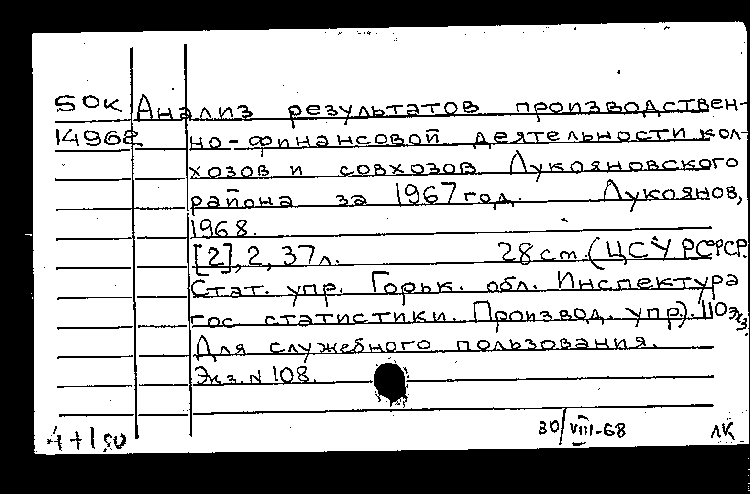 50к Анализ результатов производствен-
14968 но-финансовой деятельности кол-
хозов и совхозов Лукояновского
района за 1967 год. Лукоянов,
1968.
[2], 2, 37 л. 28 см. (ЦСУ РСФСР.
Стат. упр. Горьк. обл. Инспектура
гос статистики. Производ. упр). 110 экз.
Для служебного пользования.
Экз. N 108.
30/VIII-68 ЛК